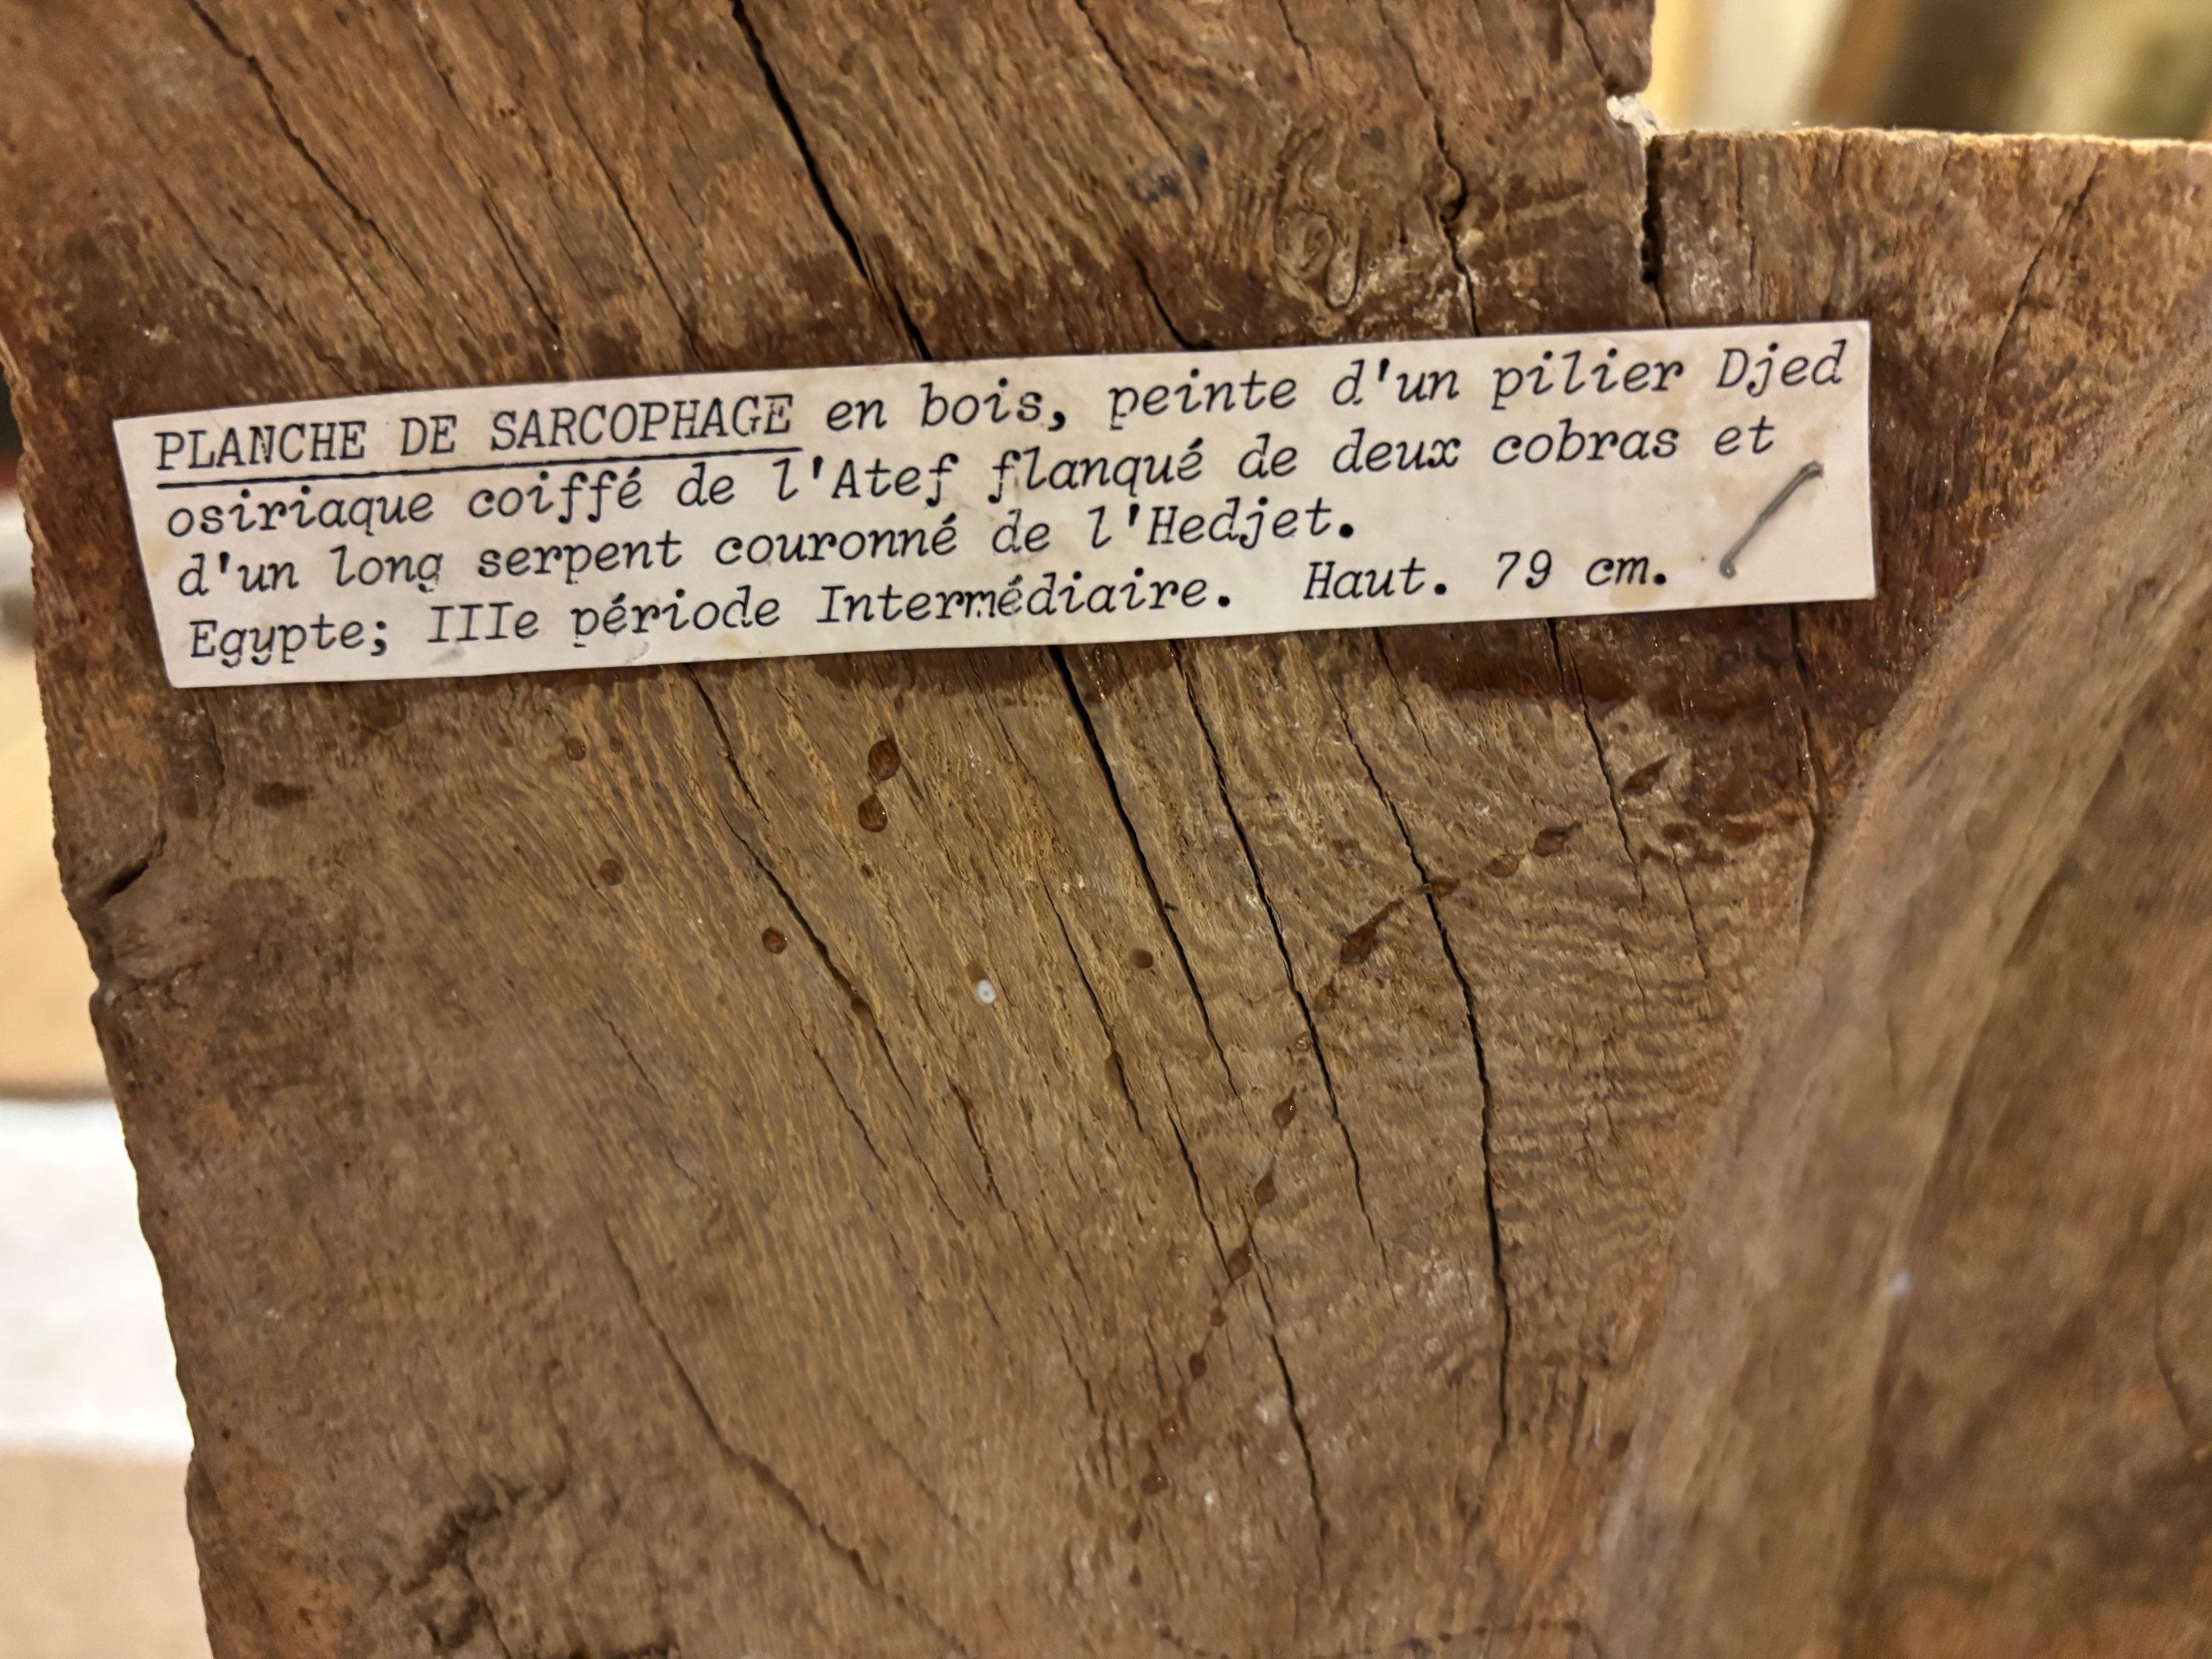 PLANCHE DE SARCOPHAGE en bois, peinte d'un pilier Djed
osiriaque coiffé de l'Atef flanqué de deux cobras et
d'un long serpent couronné de l'Hedjet.
Egypte; IIIe période Intermédiaire. Haut. 79 cm.